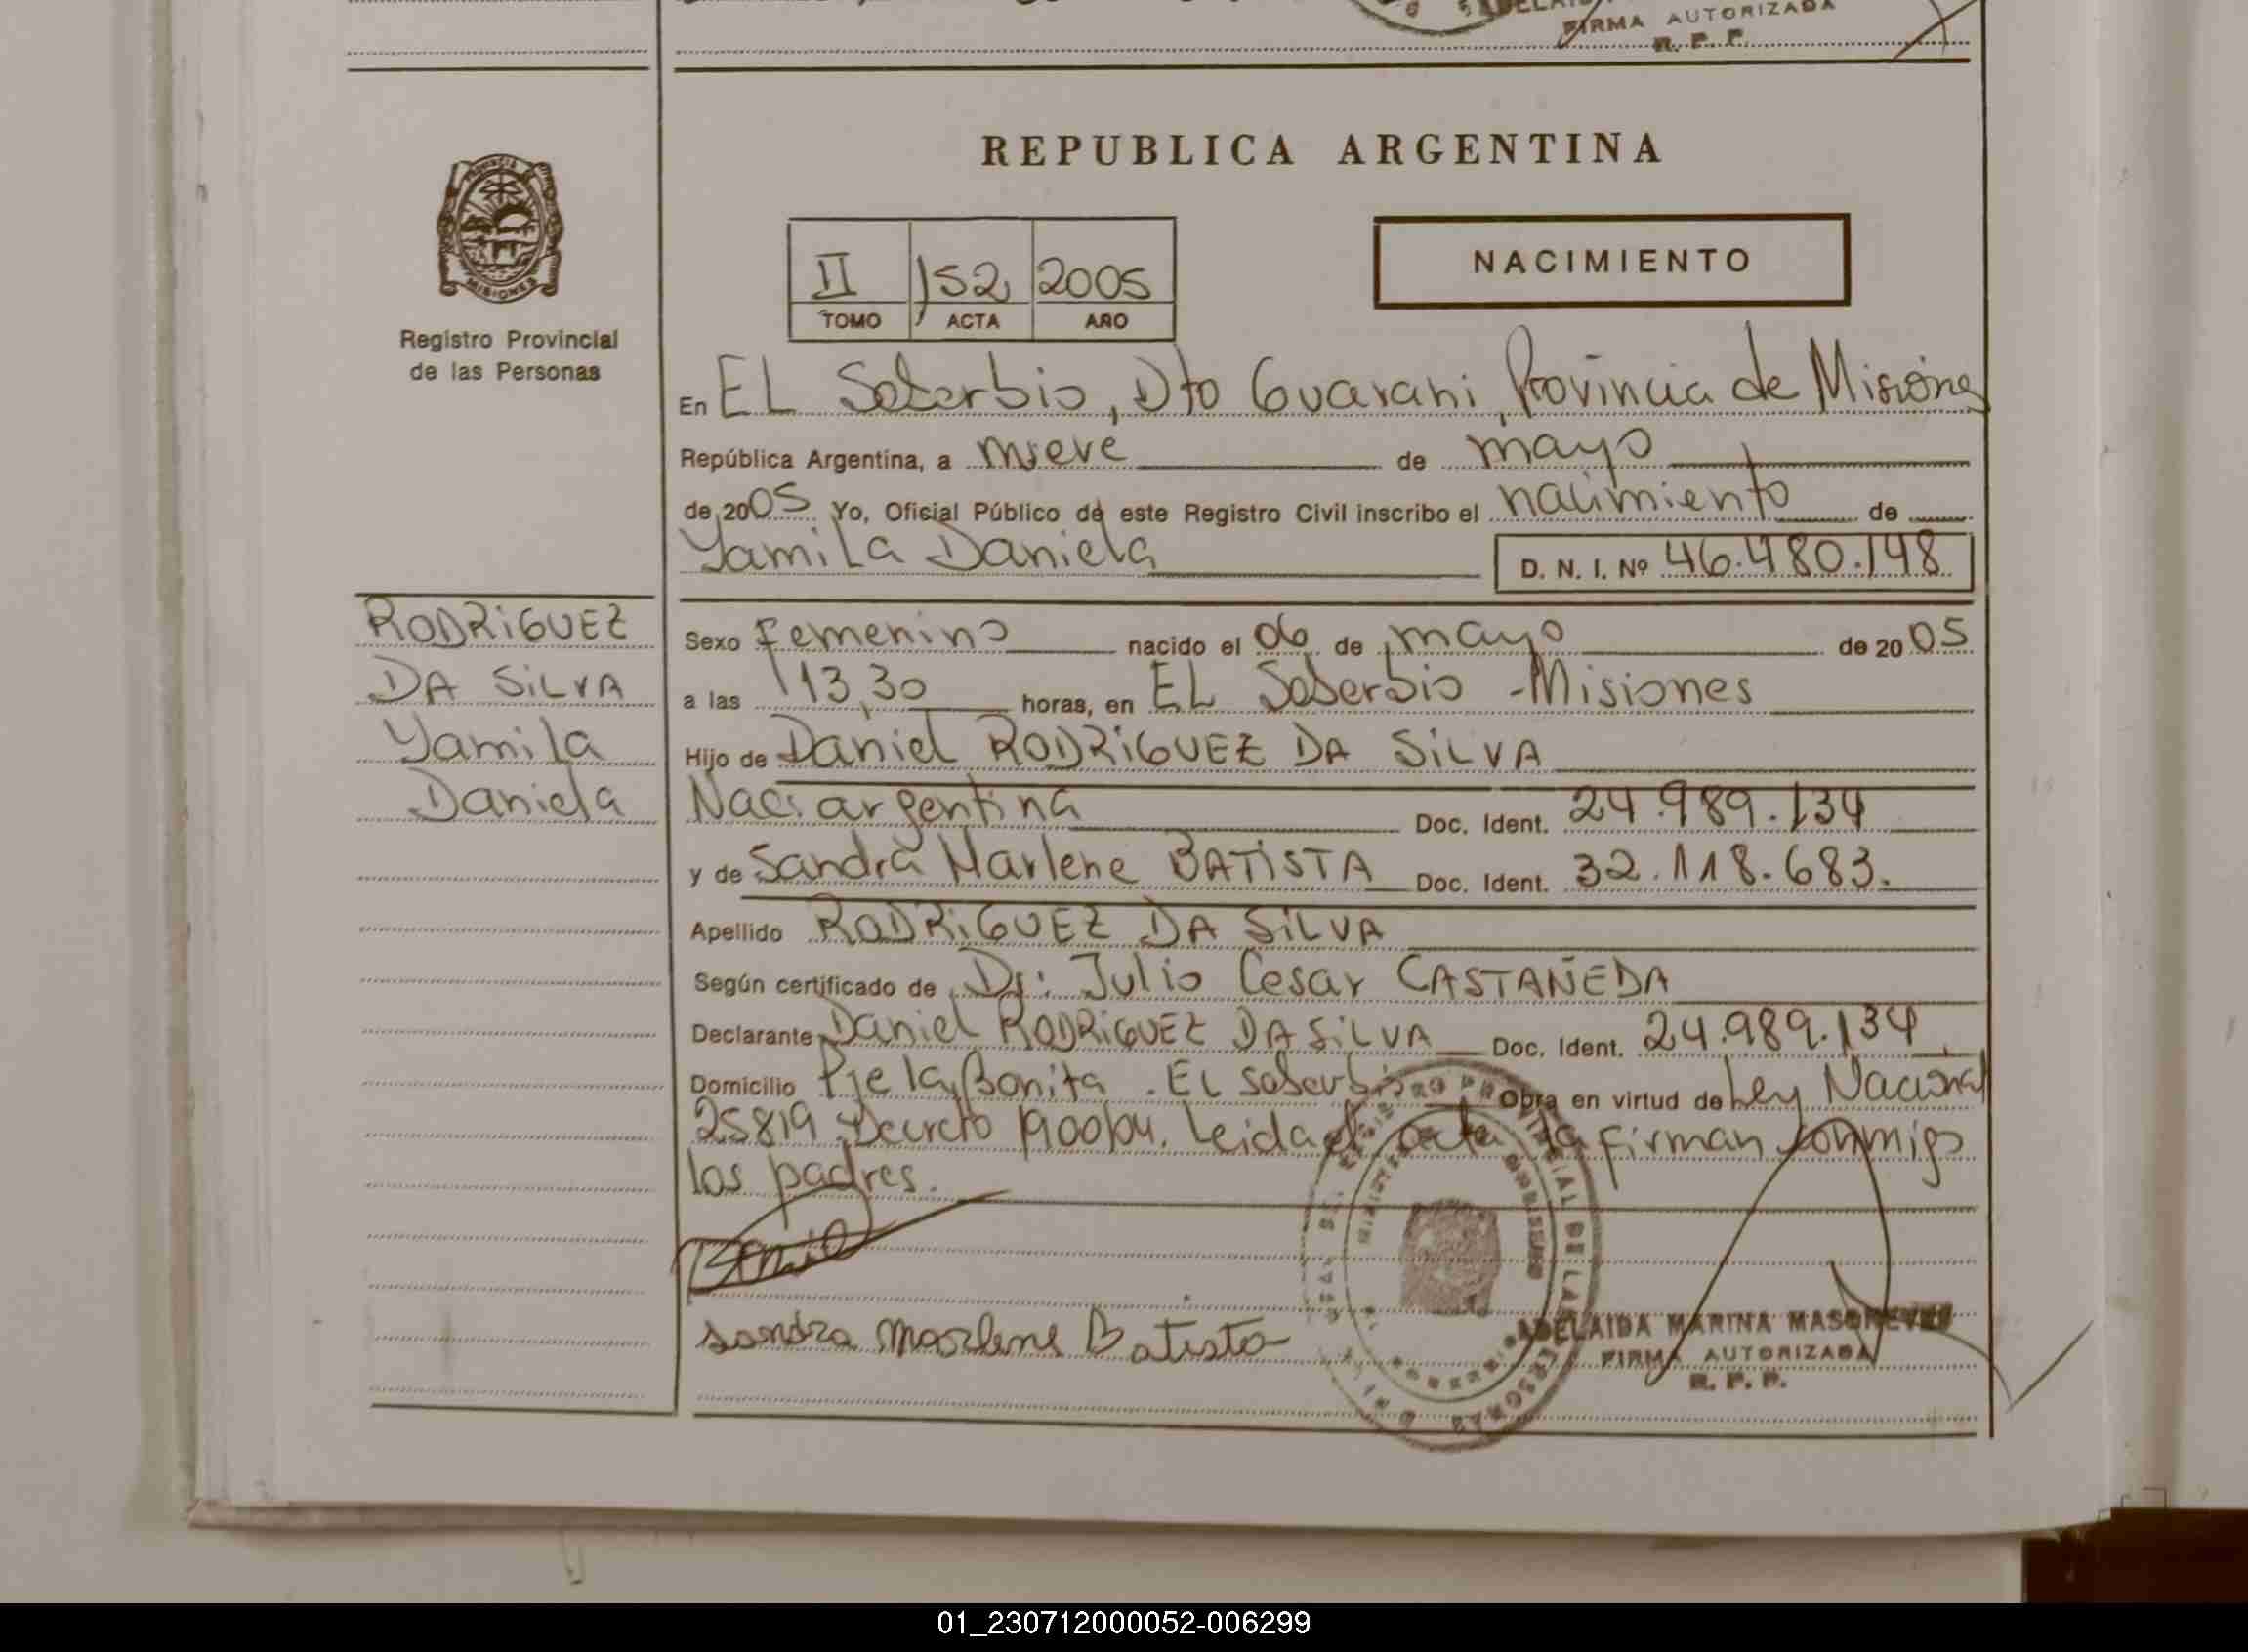 FIRMA AUTORIZADA
R. P. P.
PROVINCIA
MISIONES
Registro Provincial
de las Personas
REPUBLICA ARGENTINA
II 152 2005
TOMO ACTA AÑO
NACIMIENTO
En EL Soberbio, Dto Guarani, Provincia de Misiones
República Argentina, a nueve de mayo
de 2005 Yo, Oficial Público de este Registro Civil inscribo el nacimiento de
Yamila Daniela D. N. I. Nº 46.480.148
RODRIGUEZ
DA SILVA
Yamila
Daniela
Sexo Femenino nacido el 06 de mayo de 2005
a las 13,30 horas, en EL Soberbio - Misiones
Hijo de Daniel RODRIGUEZ DA SILVA
Nac: argentina Doc. Ident. 24.989.134
y de Sandra Marlene BATISTA Doc. Ident. 32.118.683.
Apellido RODRIGUEZ DA SILVA
Según certificado de Dr: Julio Cesar CASTAÑEDA
Declarante Daniel RODRIGUEZ DA SILVA Doc. Ident. 24.989.134
Domicilio Pje la Bonita. EL Soberbio Obra en virtud de Ley Nacional
25819 Decreto 1900/04. Leida el acta la firman conmigo
los padres.
Sandra Marlene Batista
ADELAIDA MARINA
FIRMA AUTORIZADA
R. P. P.
01_230712000052-006299